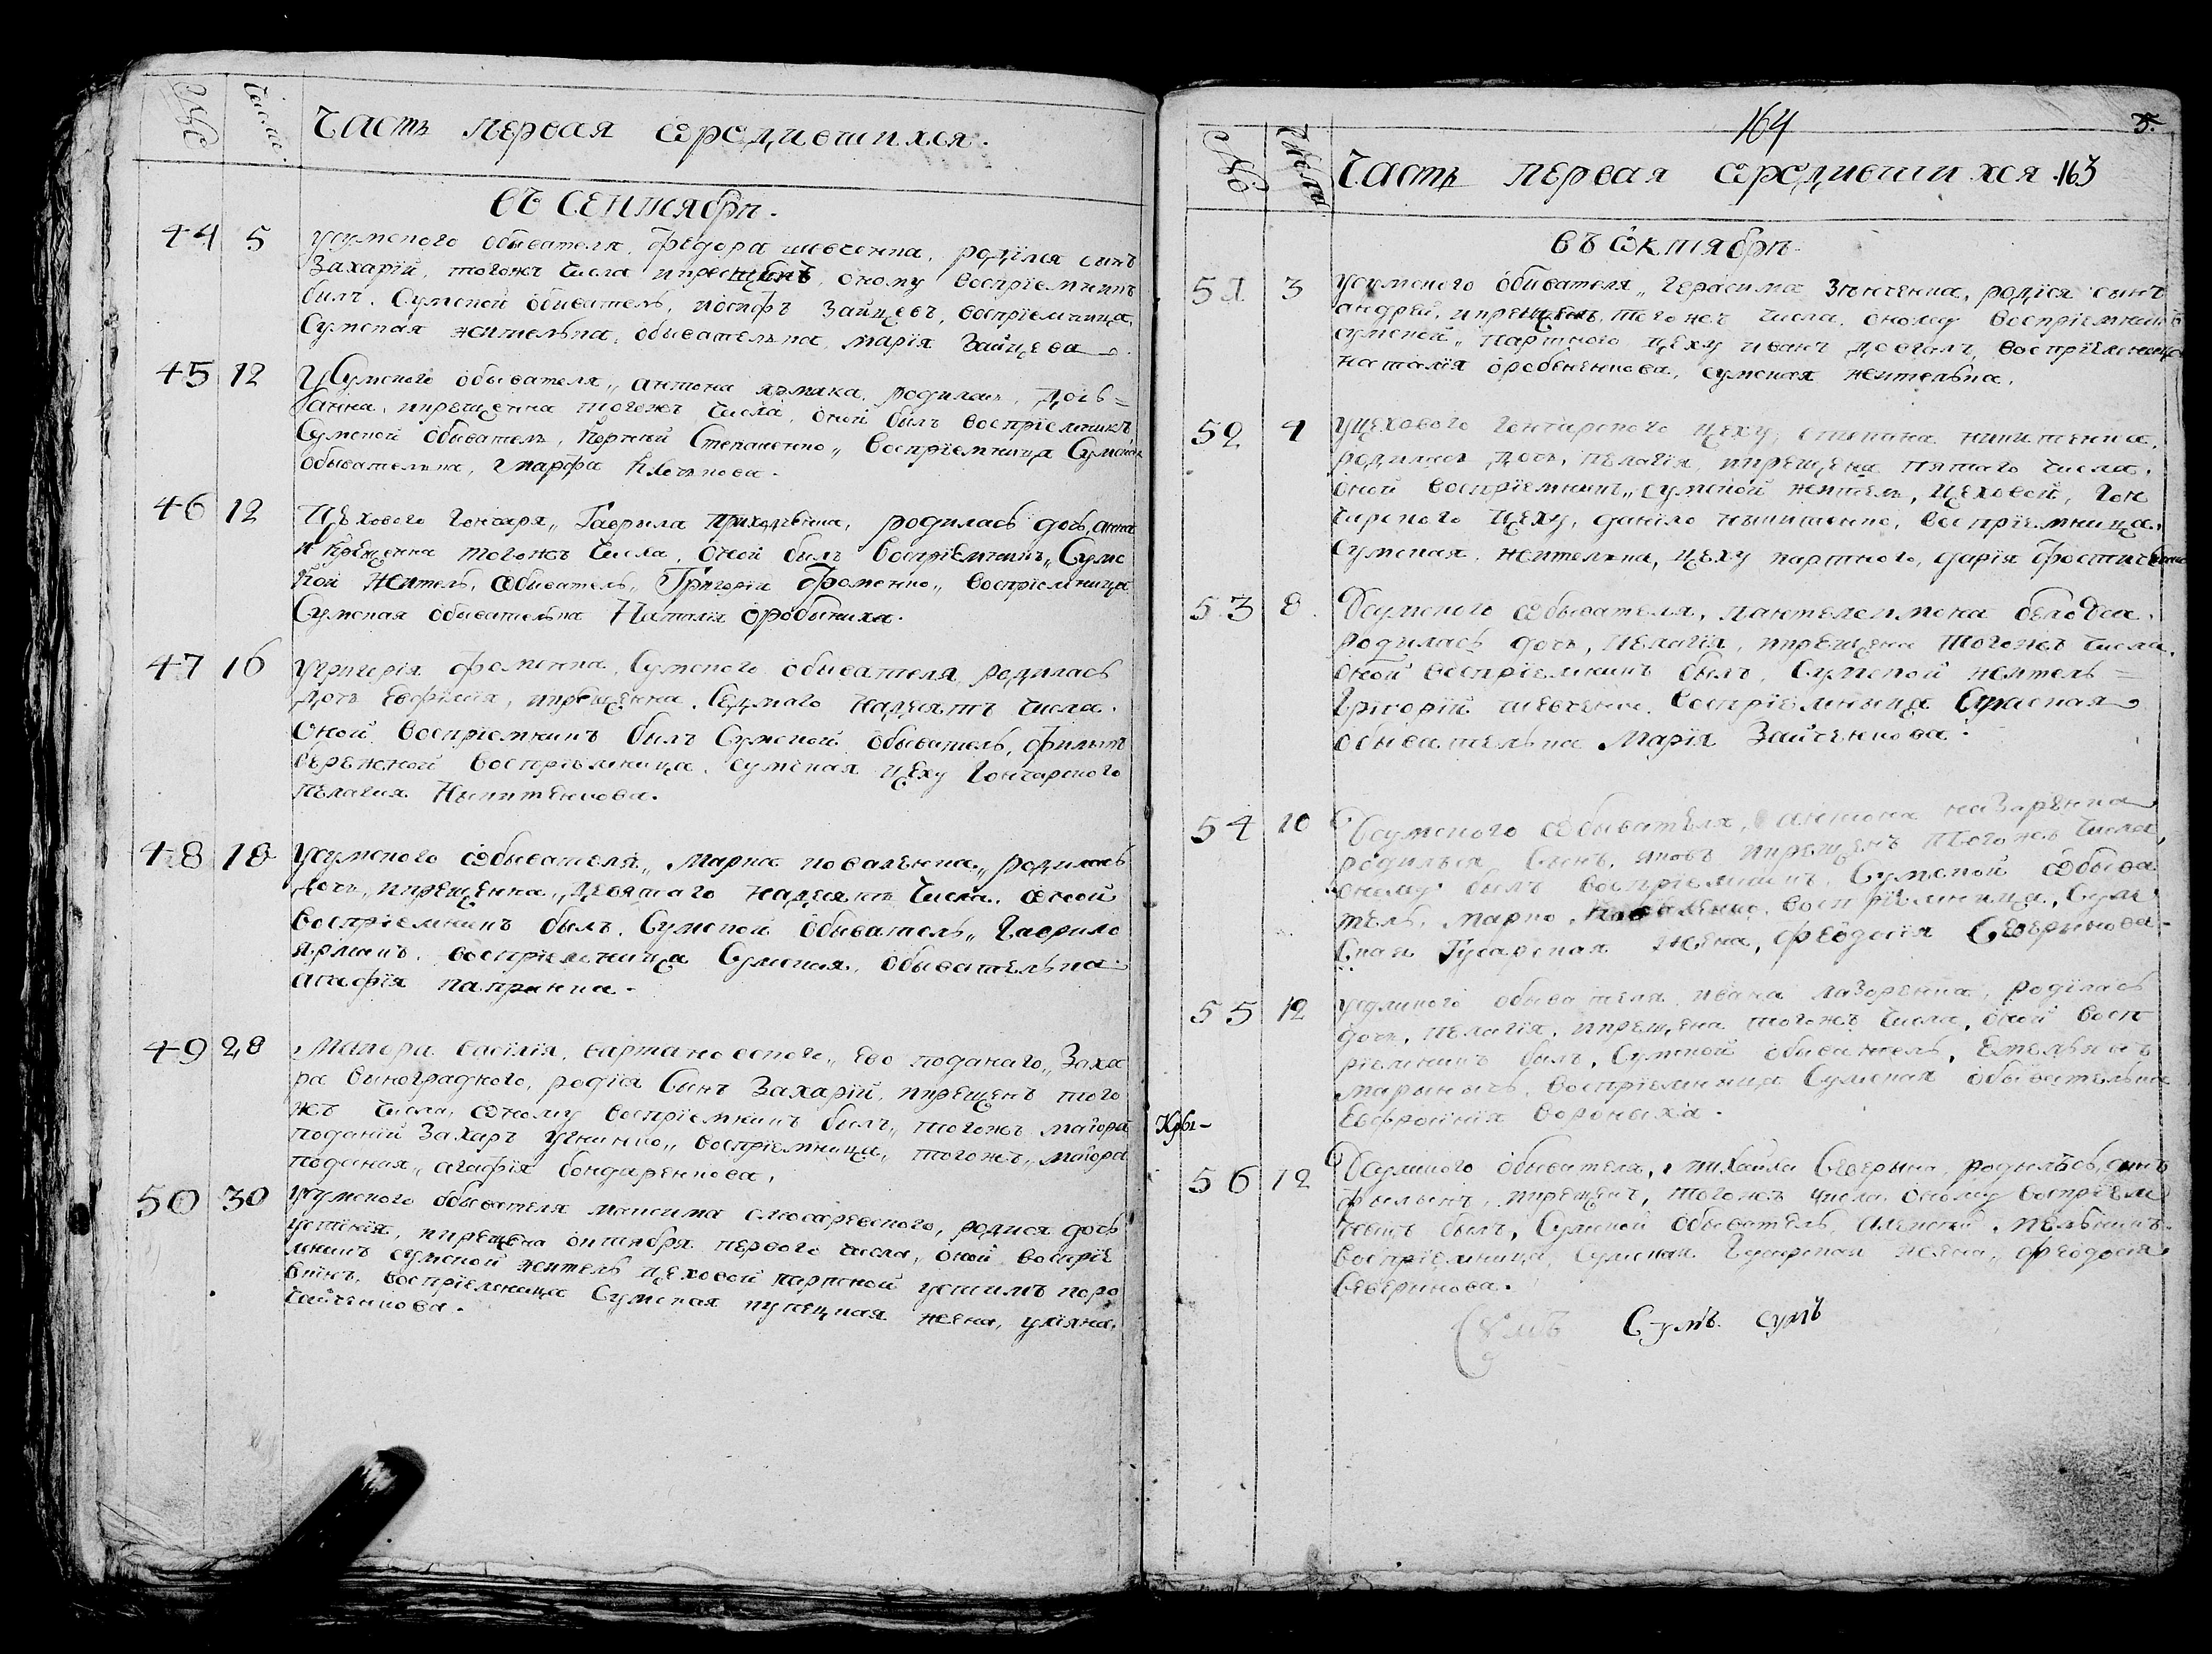 Числа.
Часть первая ѡродившихся.
въ сентябрѣ.
44 5 усумского обывателя, федора шевченка, родїлся сынъ
Захарїй, тогожъ числа икрещенъ, оному воспрїемникъ
билъ. Сумской обиватель, иосифъ Зайцевъ, воспрїемница,
Сумская жителька, обывателька, марїя Зайцева
45 12 уСумского обывателя, антона ярмака, родилась, дочь=
анна, икрещенна тогожъ числа, оной былъ воспрїемникъ,
Сумской обыватель, Корний Степаненко, воспрїемница Сумская
обывателька, марфа
46 12 Цѣхового гончаря, Гаврила родилась дочь, анна
и крещенна тогожъ числа, оной былъ воспрїемникъ, Сумс
кой житель, ѡбыватель, Григорїй фоменко, воспрїемница
Сумская обывателька Наталїя оробьиха.
47 16 уГригорїя фоменка, Сумского обивателя родилась
дочь Евфимїя, икрещенна, Седмого надцять числа.
Оной воспрїемникъ билъ Сумской обыватель, филипъ
бережной воспрїемница, сумская цеху Гончарского
пелагия Никитенкова.
48 18 усумского ѡбывателя, Марка коваленка, родилась
дочь, икрещенна, девятого надцять числа. ѡной
воспрїемникъ былъ. Сумской обыватель, Гаврило
ярмакъ. воспрїемница Сумская, обывателька
агафїя
49 28 Маиора василїя, картановского, Ево поданаго, Заха
ра виноградного, родїся Сынъ Захарїй, икрещенъ того
жъ числа, ѡному воспрїемникъ билъ, тогожъ маїора
поданїй Захаръ воспрїемница, тогожъ, маїора
поданая, агафїя бондаренкова,
50 30 усумского обывателя максима слюсаревского, родися дочь
устинїя, икрещена октября первого числа, оной воспрїе
мникъ сумской житель цеховой устимъ поро
воспрїемница Сумская купецкая жена, улїяна,
чайченкова.
164
5.
Часть первая ѡродившихся. 163
въ ѡктябрѣ.
51 3 усумского обивателя, герасима родїся сынъ
андрей, икрещенъ, тогожъ числа, оному воспрїемникъ
сумской, цеху иванъ довгаль, воспрїемница
наталїя оробченкова, сумская жителька.
52 4 уцехового гончарского цеху, степана никитенка,
родилась дочь, пелагїя, икрещена пятого числа.
оной воспрїемникъ, сумской житель, цеховой, гон
чарского цеху, данїло никитенко, воспрїемница,
сумская, жителька, цеху дарїя
53 8. Усумского ѡбывателя, пантелеимона
родилась дочь, пелагїя, икрещена тогожъ числа.
оной воспрїемникъ былъ, Сумской житель =
Григорїй шевченко, воспрїемница Сумская
обывателька Марїя Зайченкова.
54 10 Усумского ѡбывателя, антона назаренка
родилься Сынъ, яковъ икрещенъ тогожъ числа,
оному былъ воспрїемникъ, Сумской ѡбыва
тель, марко, воспрїемница, Сум
ская Гусарская жена, феодосїя Северинова.
55 12 усумского обывателя ивана лазоренка, родїлась
дочь, пелагїя, икрещена тогожъ числа, оной восп
рїемникъ былъ, Сумской обыватель, Емельянъ
воспрїемница Сумская обывателька
Евфросинїя
56 12 Усумского обывателя, михайла Северына, родылъсь, синъ
филипъ, икрещенъ, тогожъ числа, оному воспрїем
никъ былъ, Сумской обыватель, алексей,
воспрїемница, Сумская Гусарская жена, феодосїя
Северинова.
Сумъ Сумъ сумъ